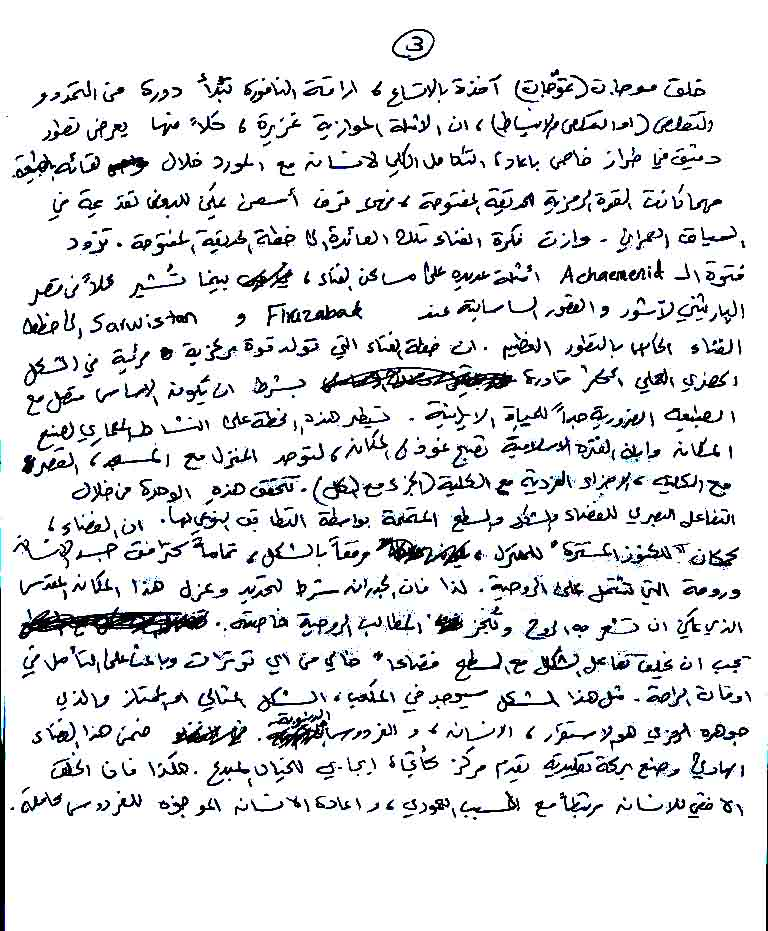 3
خلق موجات (تموّجات) آخذة بالاتساع، اراقة النافورة تبدأ دورة من التمدد و
التقلص (او الانبساط)، ان الامثلة الموازية غزيرة، كلاً منها يعرض تطور
دقيق في طراز خاص باعادة التكامل الكلي للانسان مع المورد خلال لقائه بالطبيعة.
مهما كانت القوة الرمزية للحديقة المفتوحة، فهي ترف أسمى
السياق العمراني. وازت فكرة الفناء تلك العائدة الى خطة الحديقة المفتوحة. تزود
فترة الـ Achaemenid امثلة عديدة على مساكن الفناء، بينما تُشير كلاً من قصر
البارثيني لآشور والقصور الساسانية عند Firuzabad و Sarwistan الى خطة
الفناء الخاص بالتطور العظيم. ان خطة الفناء التي تولد قوة مركزية مرئية في الشكل
الحضري المحلي قادرة بشرط ان يكون الاساس متصل مع
الطبيعة الضرورية جداً للحياة الايرانية. تسيطر هذه الخطة على النشاط المعماري لصنع
المكان وابان الفترة الاسلامية تصبح نموذج المكان، لتوحد المنزل مع المسجد، القصر
مع الكلية، الاجزاء الفردية مع الكلية (الجزء مع الكل). تتحقق هذه الوحدة من خلال
التفاعل البصري للفضاء والشكل والسطح المتممة بواسطة التطابق النوعي لها. ان الفضاء،
كمكان "للكنوز المستترة" للمنزل، مرفقاً بالشكل، تماماً كترافق جسد الانسان
وروحه التي تشتمل على الروحية. لذا فان الجدران شرط لتحديد وعزل هذا المكان المقدس
الذي يمكن ان تشعر به الروح وتُنجز المطالب الروحية خاصته.
يجب ان يخلق تفاعل الشكل مع السطح فضاءا" خالي من اي توترات وباعث على التأمل في
اوقات الراحة. مثل هذا الشكل سيوجد في المكعب، الشكل المثالي او الممتاز والذي
جوهره الرمزي هو الاستقرار، الانسان، و الفردوس الدنيوية. ضمن هذا الفضاء
الهادئ وصنع بركة تقليدية يقدم مركز كأتجاه ايجابي للخيال المبدع. هكذا فان الخلق
الافقي للانسان مرتبطاً مع السبب العمودي، و اعادة الانسان الموجزه للفردوس كاملة.